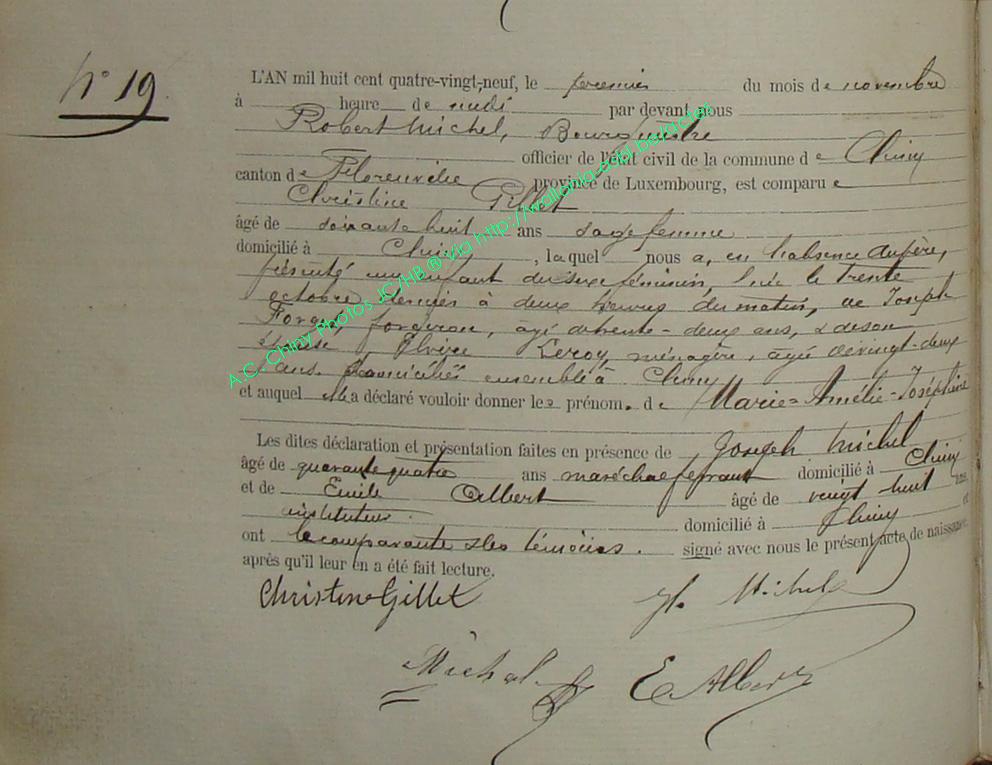 N° 19
L'AN mil huit cent quatre-vingt-neuf, le premier du mois de novembre
à heure de midi par devant nous
Robert Michel, Bourgmestre
officier de l'état civil de la commune de Chiny
canton de Florenville province de Luxembourg, est comparue
Christine Gillet
âgé de soixante huit ans sage femme
domicilié à Chiny, laquel nous a, en l'absence du père,
présenté un enfant du sexe féminin, née le trente
octobre dernier à deux heures du matin, de Joseph
Forget, forgeron, âgé de trente-deux ans, & de son
épouse, Elvire Leroy, ménagère, âgée de vingt-deux
ans domiciliés ensemble à Chiny
et auquel elle a déclaré vouloir donner les prénom. de Marie=Amélie-Joséphine
Les dites déclaration et présentation faites en présence de Joseph Michel
âgé de quarante quatre ans maréchal ferrant domicilié à Chiny
et de Emile Albert âgé de vingt huit ans
instituteur. domicilié à Chiny et
ont la comparante & les témoins. signé avec nous le présent acte de naissance
après qu'il leur en a été fait lecture.
Christine Gillet Jh. Michel
Michel E Albert
A.C. Chiny Photos JC/HB ® via http://wallonia-adsl.be/acier